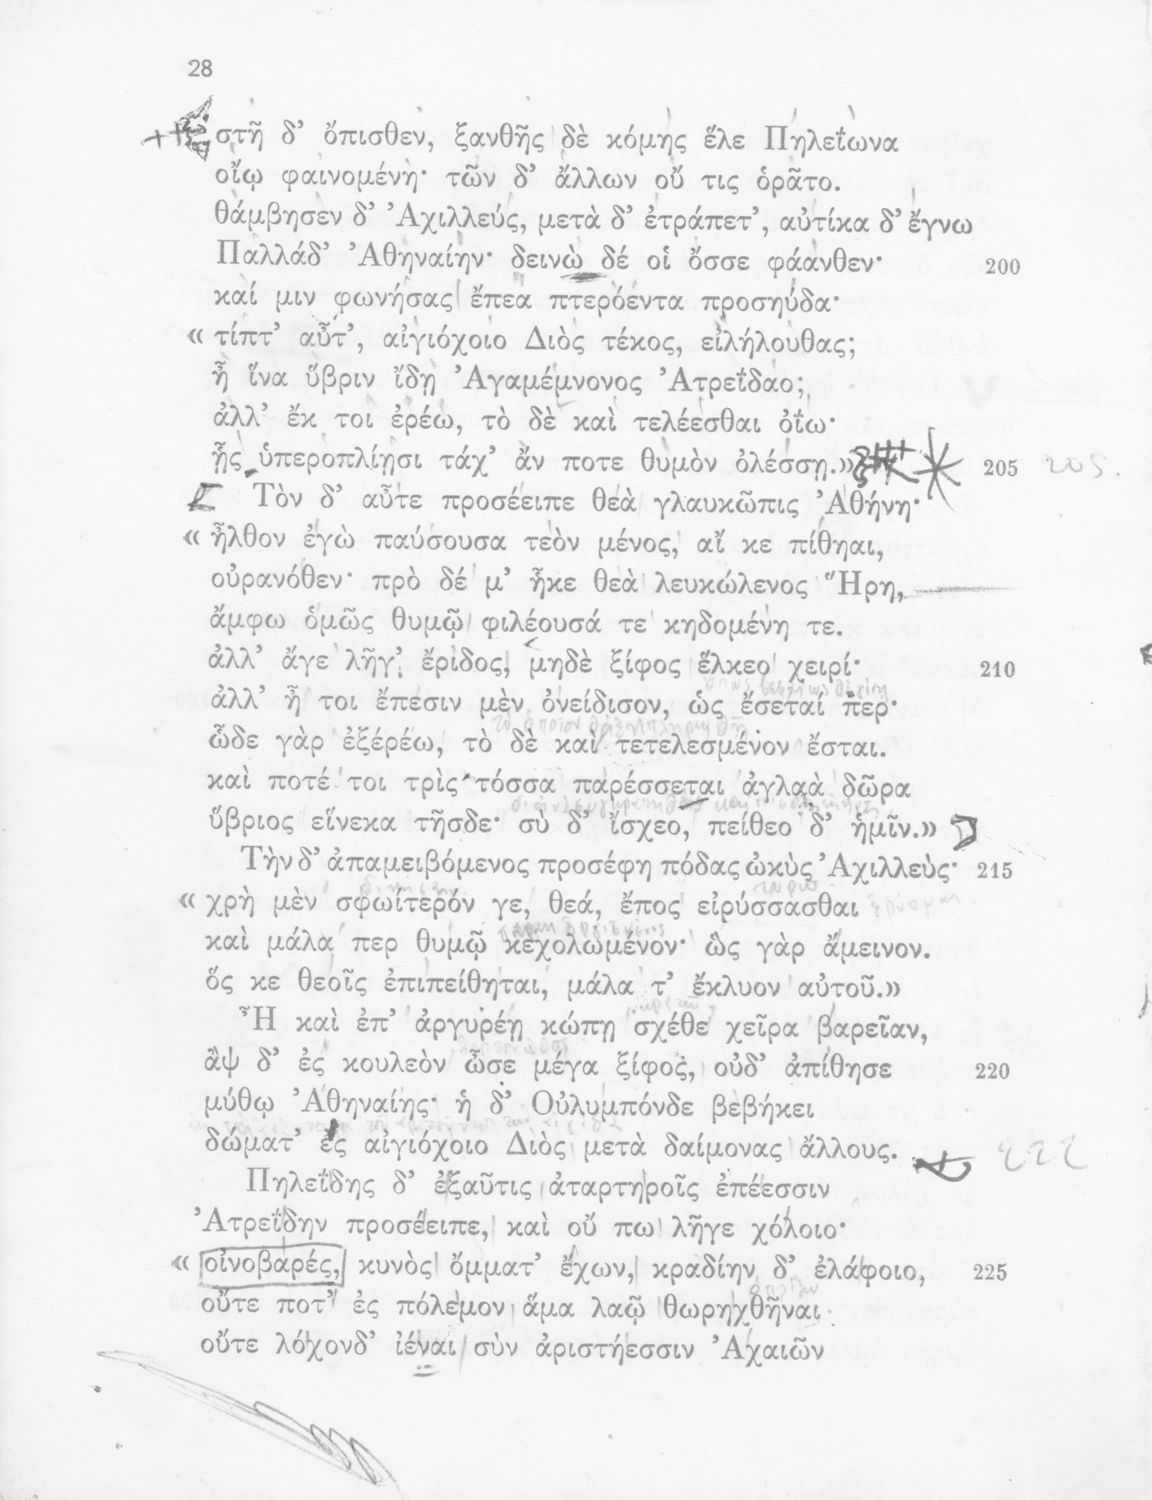 28
στῆ δ’ ὄπισθεν, ξανθῆς δὲ κόμης ἕλε Πηλεΐωνα
οἴῳ φαινομένη· τῶν δ’ ἄλλων οὔ τις ὁρᾶτο.
θάμβησεν δ’ Ἀχιλλεύς, μετὰ δ’ ἐτράπετ’, αὐτίκα δ’ ἔγνω
Παλλάδ’ Ἀθηναίην· δεινὼ δέ οἱ ὄσσε φάανθεν· 200
καί μιν φωνήσας ἔπεα πτερόεντα προσηύδα·
« τίπτ’ αὖτ’, αἰγιόχοιο Διὸς τέκος, εἰλήλουθας;
ἦ ἵνα ὕβριν ἴδῃ Ἀγαμέμνονος Ἀτρεΐδαο;
ἀλλ’ ἔκ τοι ἐρέω, τὸ δὲ καὶ τελέεσθαι ὀΐω·
ᾗς ὑπεροπλίῃσι τάχ’ ἄν ποτε θυμὸν ὀλέσσῃ.» 205 205.
Τὸν δ’ αὖτε προσέειπε θεὰ γλαυκῶπις Ἀθήνη·
« ἦλθον ἐγὼ παύσουσα τεὸν μένος, αἴ κε πίθηαι,
οὐρανόθεν· πρὸ δέ μ’ ἧκε θεὰ λευκώλενος Ἥρη,
ἄμφω ὁμῶς θυμῷ φιλέουσά τε κηδομένη τε.
ἀλλ’ ἄγε λῆγ’ ἔριδος, μηδὲ ξίφος ἕλκεο χειρί· 210
ἀλλ’ ἦ τοι ἔπεσιν μὲν ὀνείδισον, ὡς ἔσεταί περ·
ὧδε γὰρ ἐξερέω, τὸ δὲ καὶ τετελεσμένον ἔσται.
καὶ ποτέ τοι τρὶς τόσσα παρέσσεται ἀγλαὰ δῶρα
ὕβριος εἵνεκα τῆσδε· σὺ δ’ ἴσχεο, πείθεο δ’ ἡμῖν.»
Τὴν δ’ ἀπαμειβόμενος προσέφη πόδας ὠκὺς Ἀχιλλεὺς· 215
« χρὴ μὲν σφωΐτερόν γε, θεά, ἔπος εἰρύσσασθαι
καὶ μάλα περ θυμῷ κεχολωμένον· ὣς γὰρ ἄμεινον.
ὅς κε θεοῖς ἐπιπείθηται, μάλα τ’ ἔκλυον αὐτοῦ.»
Ἦ καὶ ἐπ’ ἀργυρέῃ κώπῃ σχέθε χεῖρα βαρεῖαν,
ἂψ δ’ ἐς κουλεὸν ὦσε μέγα ξίφος, οὐδ’ ἀπίθησε 220
μύθῳ Ἀθηναίης· ἡ δ’ Οὐλυμπόνδε βεβήκει
δώματ’ ἐς αἰγιόχοιο Διὸς μετὰ δαίμονας ἄλλους. 222
Πηλεΐδης δ’ ἐξαῦτις ἀταρτηροῖς ἐπέεσσιν
Ἀτρεΐδην προσέειπε, καὶ οὔ πω λῆγε χόλοιο·
« οἰνοβαρές, κυνὸς ὄμματ’ ἔχων, κραδίην δ’ ἐλάφοιο, 225
οὔτε ποτ’ ἐς πόλεμον ἅμα λαῷ θωρηχθῆναι
οὔτε λόχονδ’ ἰέναι σὺν ἀριστήεσσιν Ἀχαιῶν